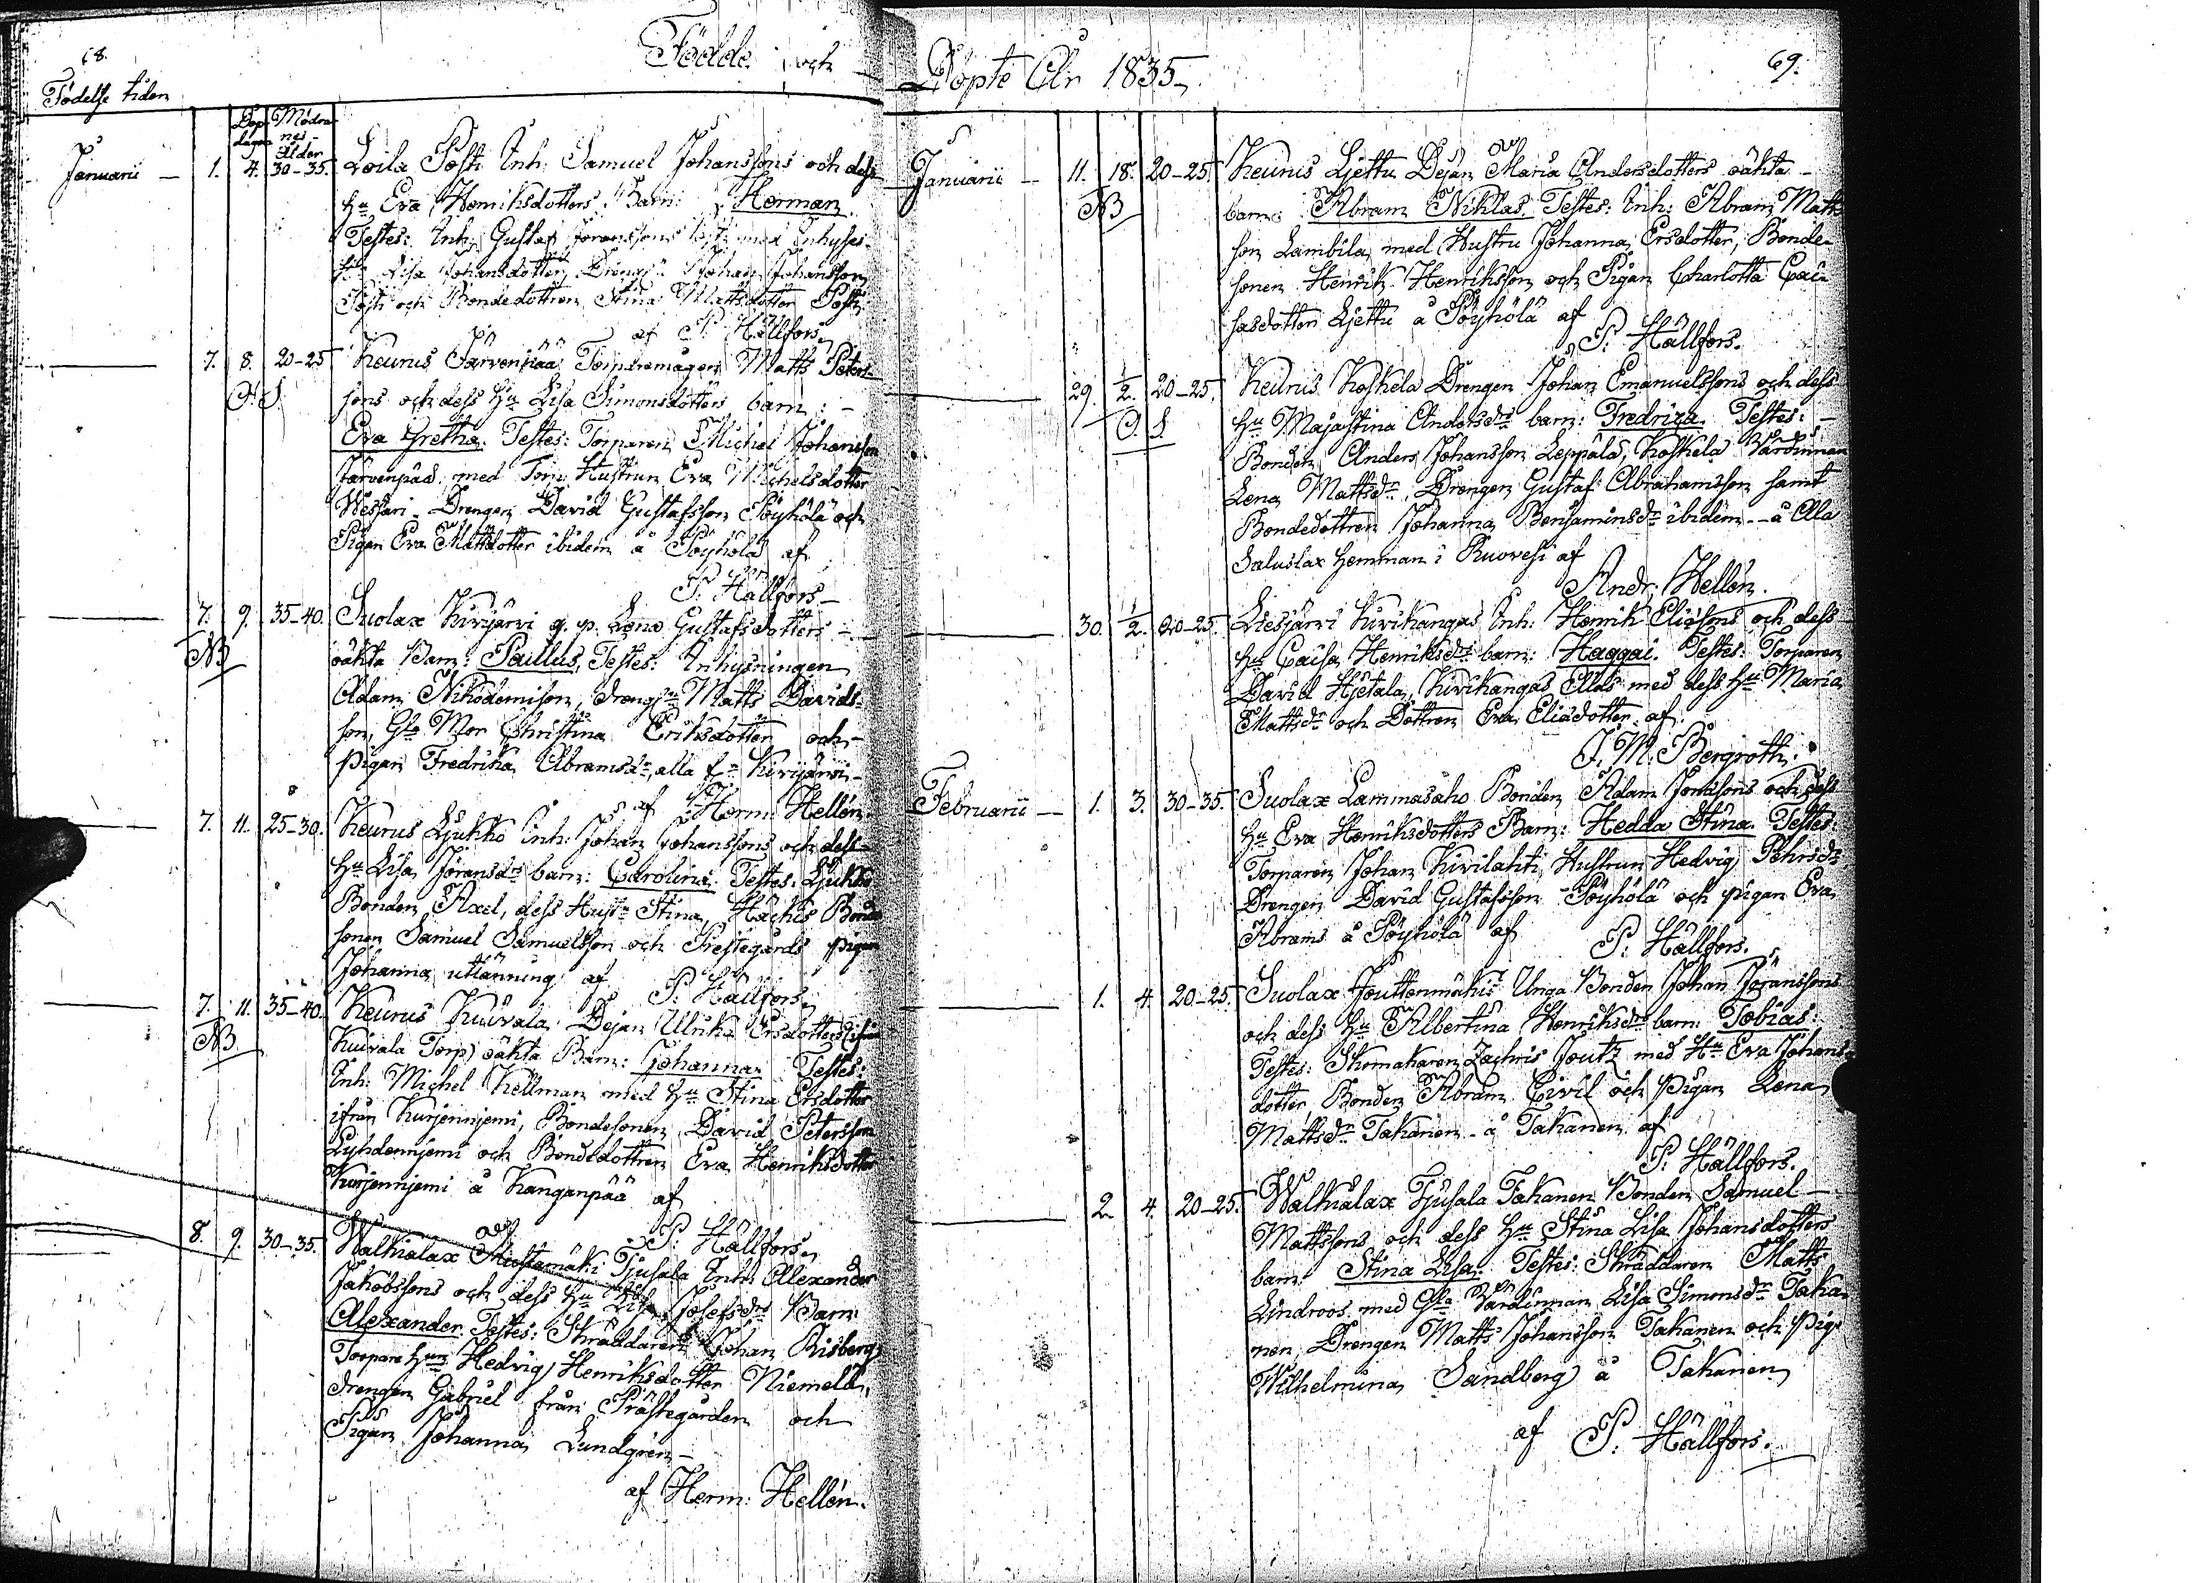 68.
Födde och
Födelse tiden
Dop dagen
Mödra-
nes
ålder
Januarii — 1. 4. 30–35. Loila Posti Inh: Samuel Johanssons och dess
Hu Eva Henriksdotters Barn: Herman
Testes: Inh: Gustaf Jöransson med Inhyses
Lisa Johansdotter, Johan Johansson
Posti och Bondedottren Stina Mattsdotter Posti
af P. Hällfors.
7. 8. 20–25 Keurus Järvenpää Torparemågen Matts Peters-
sons och dess Hu Lisa Simonsdotters barn: –
Eva Gretha. Testes: Torparen Michel Johansson
Järvenpää med Torp. Hustrun Eva Michelsdotter
Drengen David Gustafsson Pöyhölä och
Pigan Eva Mattsdotter ibidem å Pöyhölä af
P. Hällfors –
7. 9. 35–40. Suolax Kirijärvi q. p. Lena Gustafsdotters –
NB oäkta Barn: Paulus, Testes: Inhysningen
Adam Nikodemison, Matts Davids-
son, Gla Mor Christina Eriksdotter och –
pigan Fredrika Abramsdr, alla fn Kirijärvi –
af Herm: Hellén.
7. 11. 25–30. Keurus Ljukko Inh: Johan Johanssons och dess
Hu Lisa Jöransdrs barn: Carolina. Testes: Ljukko
Bonden Axel, dess Hustru Stina, Bonde
sonen Samuel Samuelsson och Prestegårds pigan
Johanna utlänning af P. Hällfors.
7. 11. 35–40. Keurus Kuivala Dejan Ulrika Ersdotters
NB Kuivala Torp) oäkta Barn: Johanna Testes:
Inh: Michel Kellman med Hu Stina Ersdotter
ifrån Kurjenniemi, Bondesonen David Petersson
Lyhdenniemi och Bondedottren Eva Henriksdotter
Kurjenniemi å Kanganpää af
P. Hällfors.
8. 9. 30–35. Walkialax Mustamäki Tjusala Inh: Alexander
Jakobssons och dess Hu Lisa Josefsdrs Barn
Alexander. Testes: Skräddaren Johan Risberg,
Torpare Hun Hedvig Henriksdotter Niemelä,
drengen Gabriel från Prästegården och
Pigan Johanna Lundgren –
af Herm: Hellén.
69.
Döpte År 1835.
Januarii — 11. 18. 20–25. Keurus Ljettu Dejan Maria Andersdotters oäkta –
NB barn: Abram Niklas. Testes: Inh: Abram Matts
son Lambila med Hustru Johanna Ersdotter, Bonde-
sonen Henrik Henriksson och Pigan Charlotta Cai-
sasdotter Ljettu å Pöyhölä af
P. Hällfors.
29. 1/2. 20–25. Keurus Koskela Drengen Johan Emanuelssons och dess
Hu Majastina Andersdrs barn: Fredrica. Testes: –
Bonden Anders Johansson Leppälä, Koskela Värdinnan
Lena Mattsdr, Drengen Gustaf Abrahamsson samt
Bondedottren Johanna Benjaminsdr ibidem – å Ala
Saluslax hemman i Ruovesi af
Andr. Hellén.
30. 1/2. 20–25. Liesjärvi Kivikangas Inh: Henrik Eliæsons och dess
Hu Caisa Henriksdrs barn: Haggai. Testes: Torparen
David Hjetala, Kivikangas Elias med dess Hu Maria
Mattsdr och Dottren Eva Eliædotter af
J. M. Bergroth.
Februarii — 1. 3. 30–35. Suolax Lammasaho Bonden Adam Jonassons och dess
Hu Eva Henriksdotters Barn: Hedda Stina. Testes:
Torparen Johan Kivilahti, Hustrun Hedvig Pehrsdr
Drengen David Gustafsson Pöyhölä och pigan Eva
Abrams å Pöyhölä af P. Hällfors.
1. 4. 20–25. Suolax Jouttenmäkis Unga Bonden Johan Jöranssons
och dess Hu Albertina Henriksdrs barn: Tobias.
Testes: Skomakaren Zachris Joutz med Hu Eva Johans-
dotter, Bonden Abram Civil och Pigan Lena
Mattsdr Takanen – å Takanen af
P. Hällfors.
2. 4. 20–25. Walkialax Tjusala Takanen Bonden Samuel –
Mattssons och dess Hu Stina Lisa Johansdotters
barn: Stina Lisa. Testes: Skräddaren Matts
Lindroos med Gla Värdinnan Lisa Simonsdr Taka-
nen, Drengen Matts Johansson Takanen och Pigan
Wilhelmina Sandberg å Takanen
af P. Hällfors.